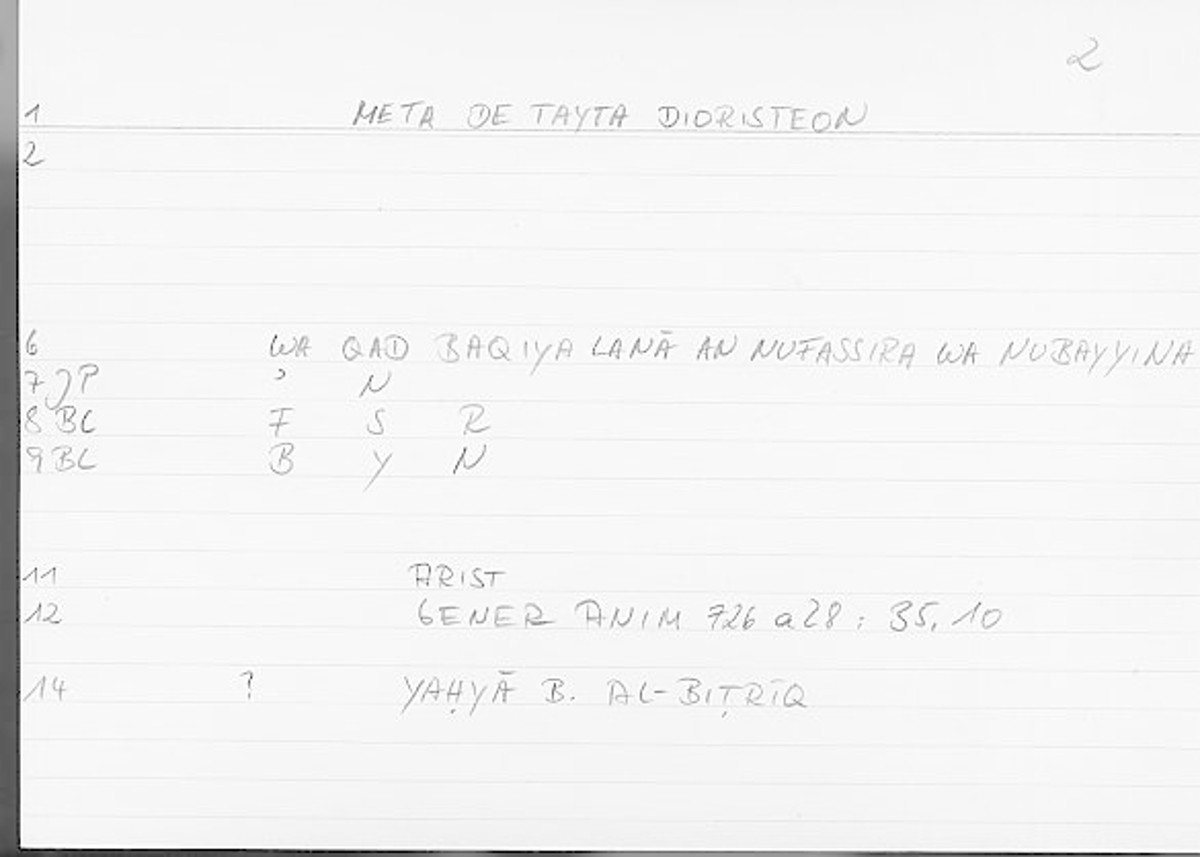 2
1 META DE TAYTA DIORISTEON
2
6 WA QAD BAQIYA LANĀ AN NUFASSIRA WA NUBAYYINA
7 JP ʾ N
8 BL F S R
9 BL B Y N
11 ARIST
12 GENER ANIM 726 a28 : 35, 10
14 ? YAḤYĀ B. AL-BIṬRĪQ